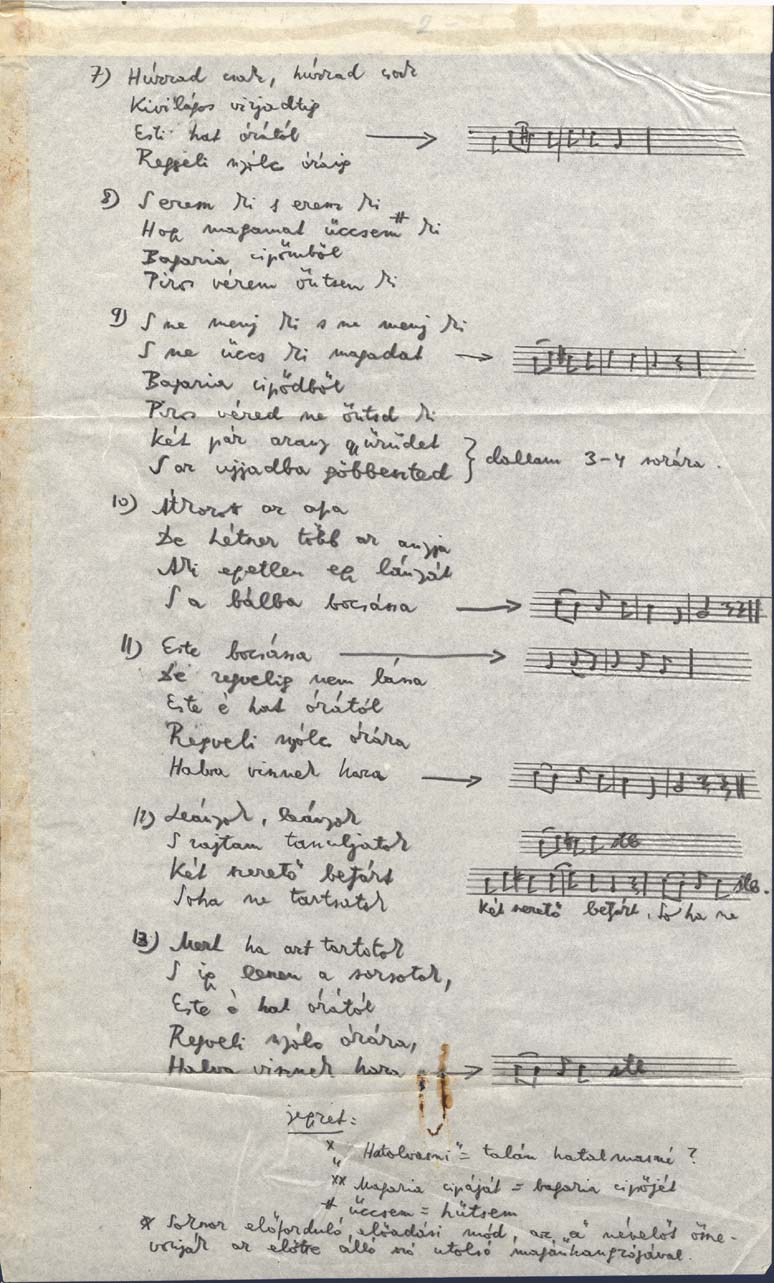 2
7) Húzzad csak, húzzad csak
Kivilágos virjadtig
Esti hat órától
Reggeli nyólc óráig
8) S erem ki s erem ki
Hogy magamat üccsem # ki
Bagaria cipőmből
Piros vérem öntsen ki
9) S ne menj ki s ne menj ki
S ne üccs ki magadat
Bagaria cipődből
Piros véred ne öntsd ki
Két pár arany gyürüdet
S az ujjadba göbbeszted } dallam 3-4 sorára.
10) Átkozott az apa
De kétszer több az anyja
Aki egetlen egy lányát
S a bálba bocsássa
11) Este bocsássa
De regvelig nem lássa
Este é hat órától
Regveli nyólc órára
Halva visznek haza
12) Leányok, leányok
S rajtam tanuljatok
stb
Két szerető befárt
Soha ne tartsatok
stb.
Két szerető befárt, So ha ne
13) Mert ha azt tartotok
S így leszen a sorsotok,
Este é hat órától
Regveli nyólc órára,
Halva visznek haza
stb
jegyzet:
x „Hatolvasni" = talán hatalmasné ?
xx Magaria cipáját = bagaria cipőjét
# üccsem = hűtsem
* Sokszor előforduló előadási mód, az „a" névelőt össze-
vonják az előtte álló szó utolsó magánhangzójával.